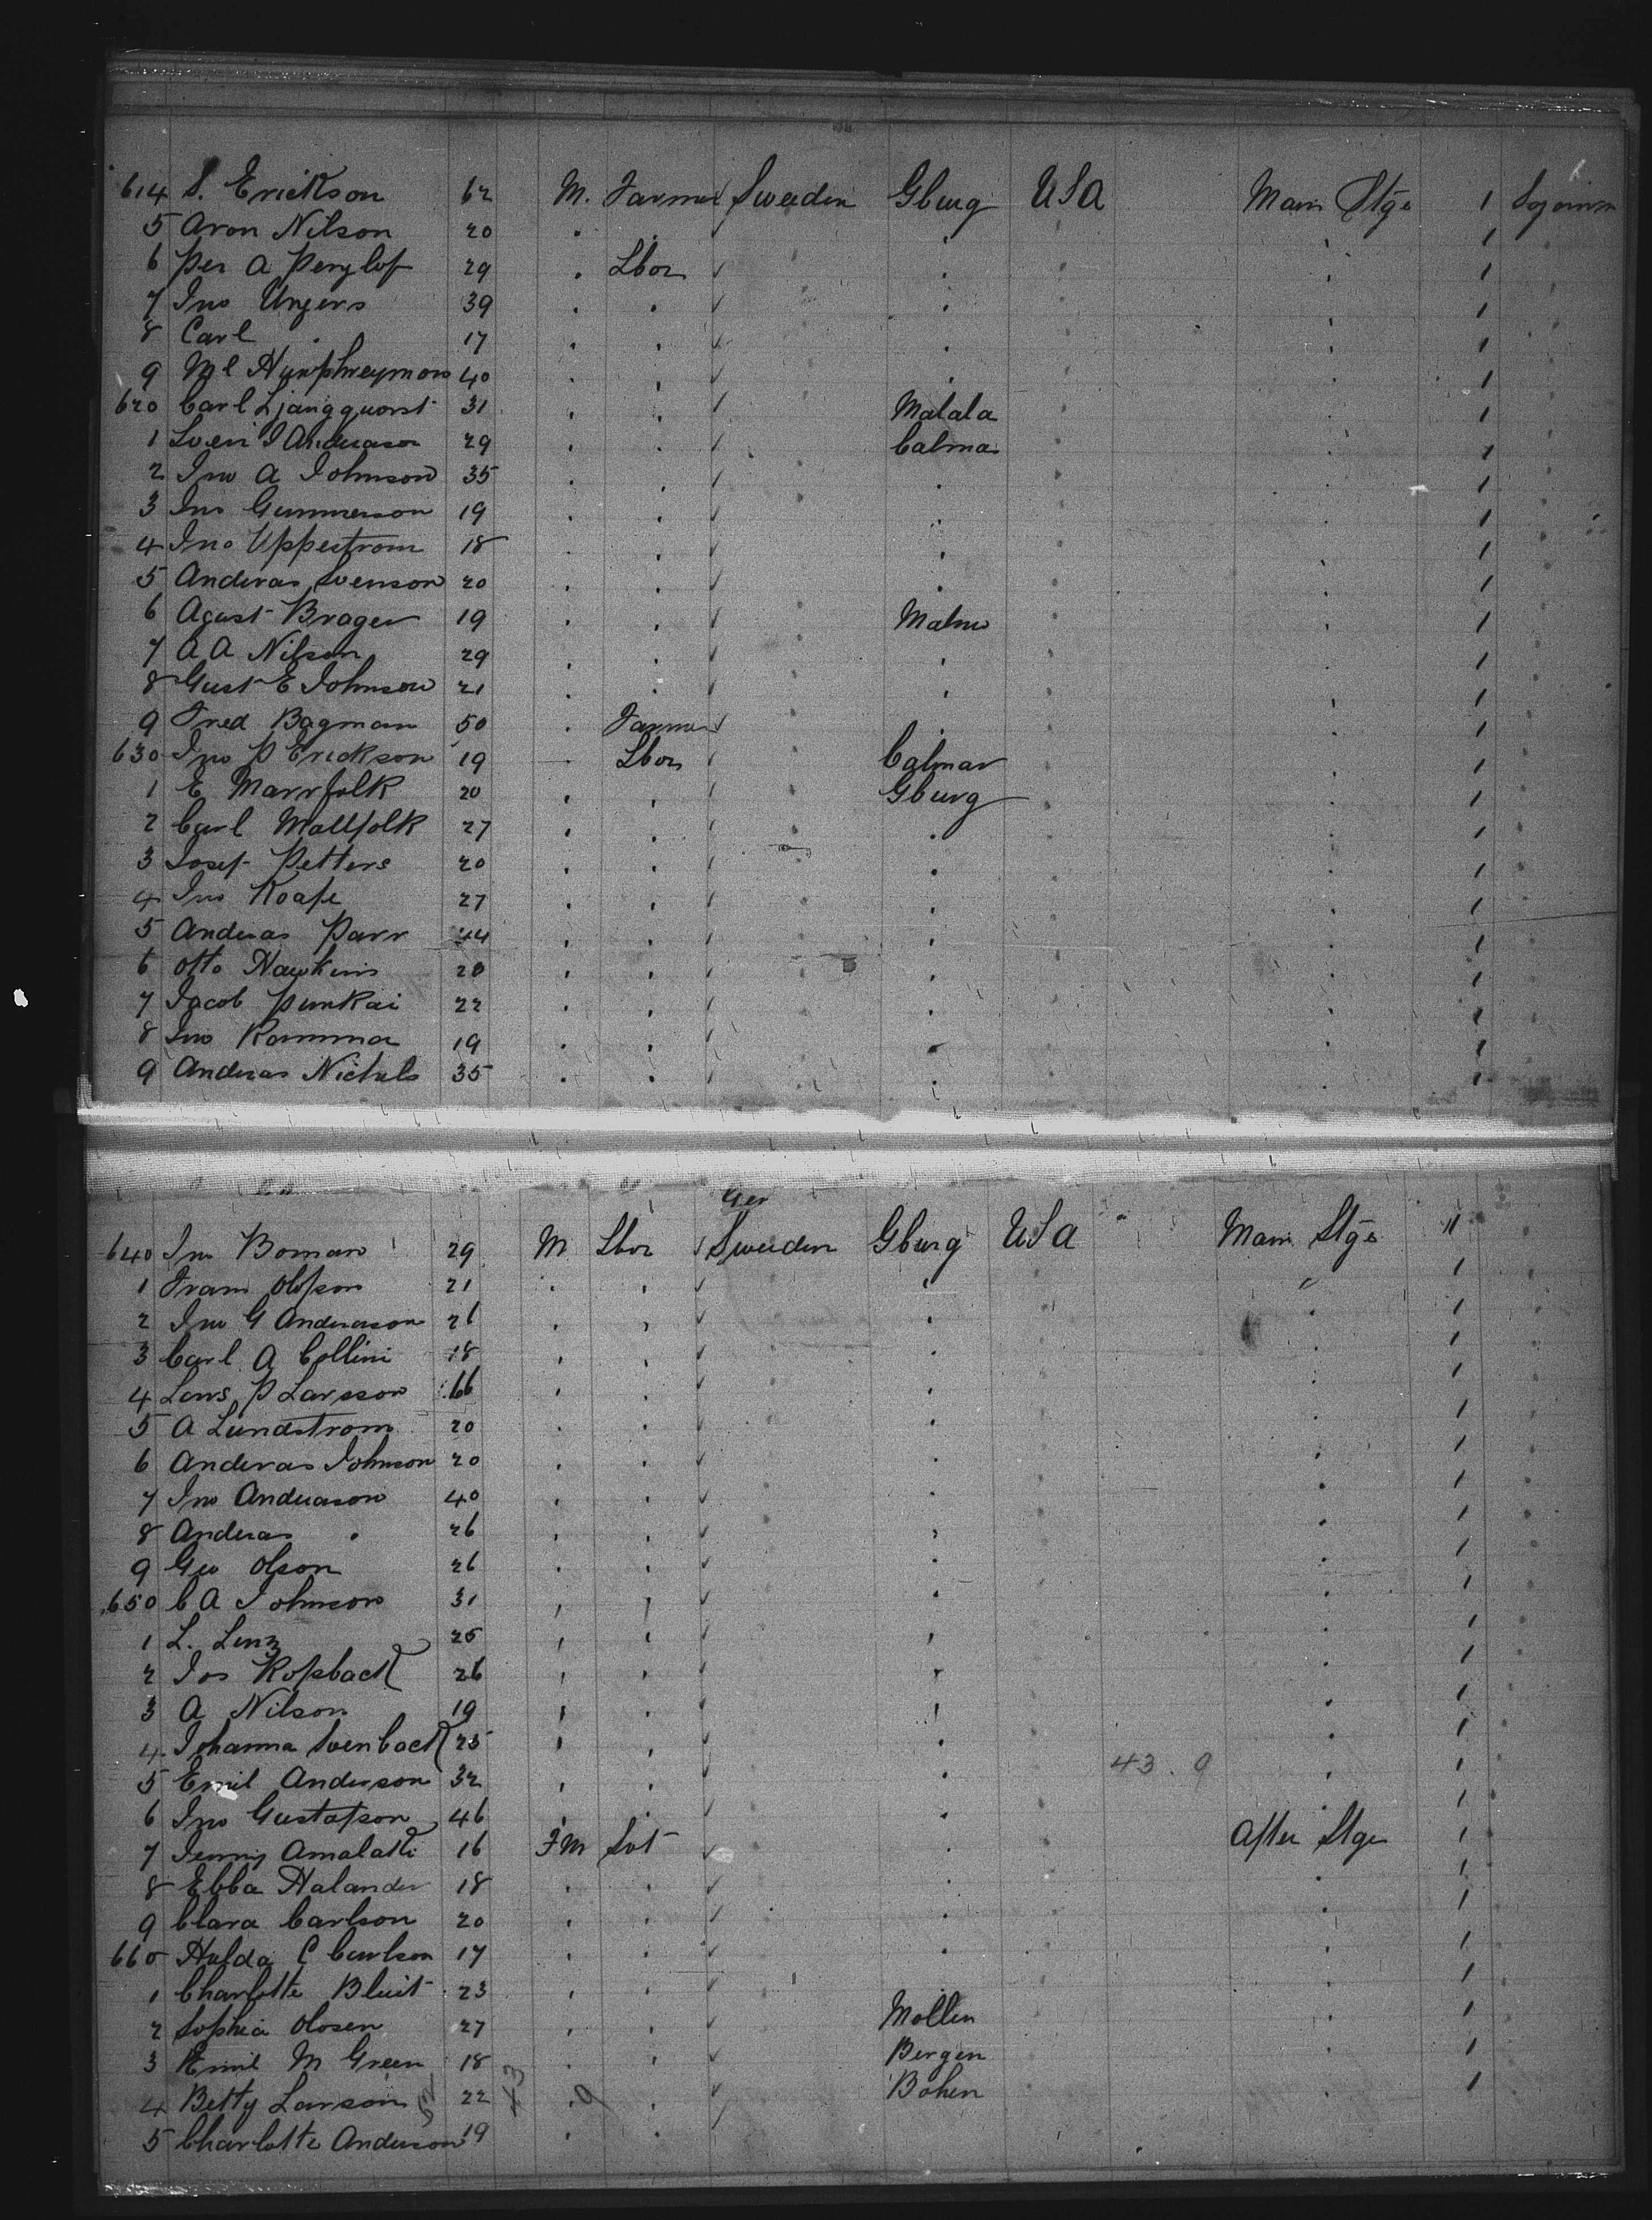 614 S. Erickson 62 M. Farmer Sweeden Gburg USA Main Stge 1 Sojourn
5 Aron Nilson 20 1
6 Per A 29 Lbor 1
7 Jno Ungers 39 1
8 Carl 17 1
9 Ml Humphreymon 40 1
620 Carl Ljangquorst 31 Malala 1
1 Sven J Anderason 29 Calmar 1
2 Jno A Johnson 35 1
3 Jno Gunnerson 19 1
4 Jno Uppestrom 18 1
5 Anderas Svenson 20 1
6 Agust Brager 19 Malmo 1
7 A A Nilson 29 1
8 Gust E Johnson 21 1
9 Fred Bagman 50 Farmer 1
630 Jno P Erickson 19 Lbor Calmar 1
1 E Marrfolk 20 Gburg 1
2 Carl Mallfolk 27 1
3 Josef Petters 20 1
4 Jno Koafe 27 1
5 Anderas Parr 44 1
6 Otto Hawkins 20 1
7 Jacob Punkai 22 1
8 Jno Ramma 19 1
9 Anderas Nichels 35 1
Ger
640 Jno Boman 29 M Lbor Sweeden Gburg USA Main Stge 11
1 Fram Olofson 21 1
2 Jno G Anderason 26 1
3 Carl A Collini 18 1
4 Lars P Larsson 66 1
5 A Lundstrom 20 1
6 Anderas Johnson 20 1
7 Jno Anderason 40 1
8 Anderas 26 1
9 Geo Olson 26 1
650 C A Johnson 31 1
1 L. Linz 25 1
2 Jos Rossback 26 1
3 A Nilson 19 1
4 Johanna Svenback 25 1
5 Emil Anderson 32 43.9 1
6 Jno Gustafson 46 1
7 Jenny Amalatti 16 FM Svt After Stge 1
8 Ebba Halander 18 1
9 Clara Carlson 20 1
660 Hulda C Carlson 17 1
1 Charlotte Bluit 23 1
2 Sophia Olosen 27 Mollen 1
3 Emil M Green 18 Bergen 1
4 Betty Larson 22 43 9 Bohen 1
5 Charlotte Anderson 19